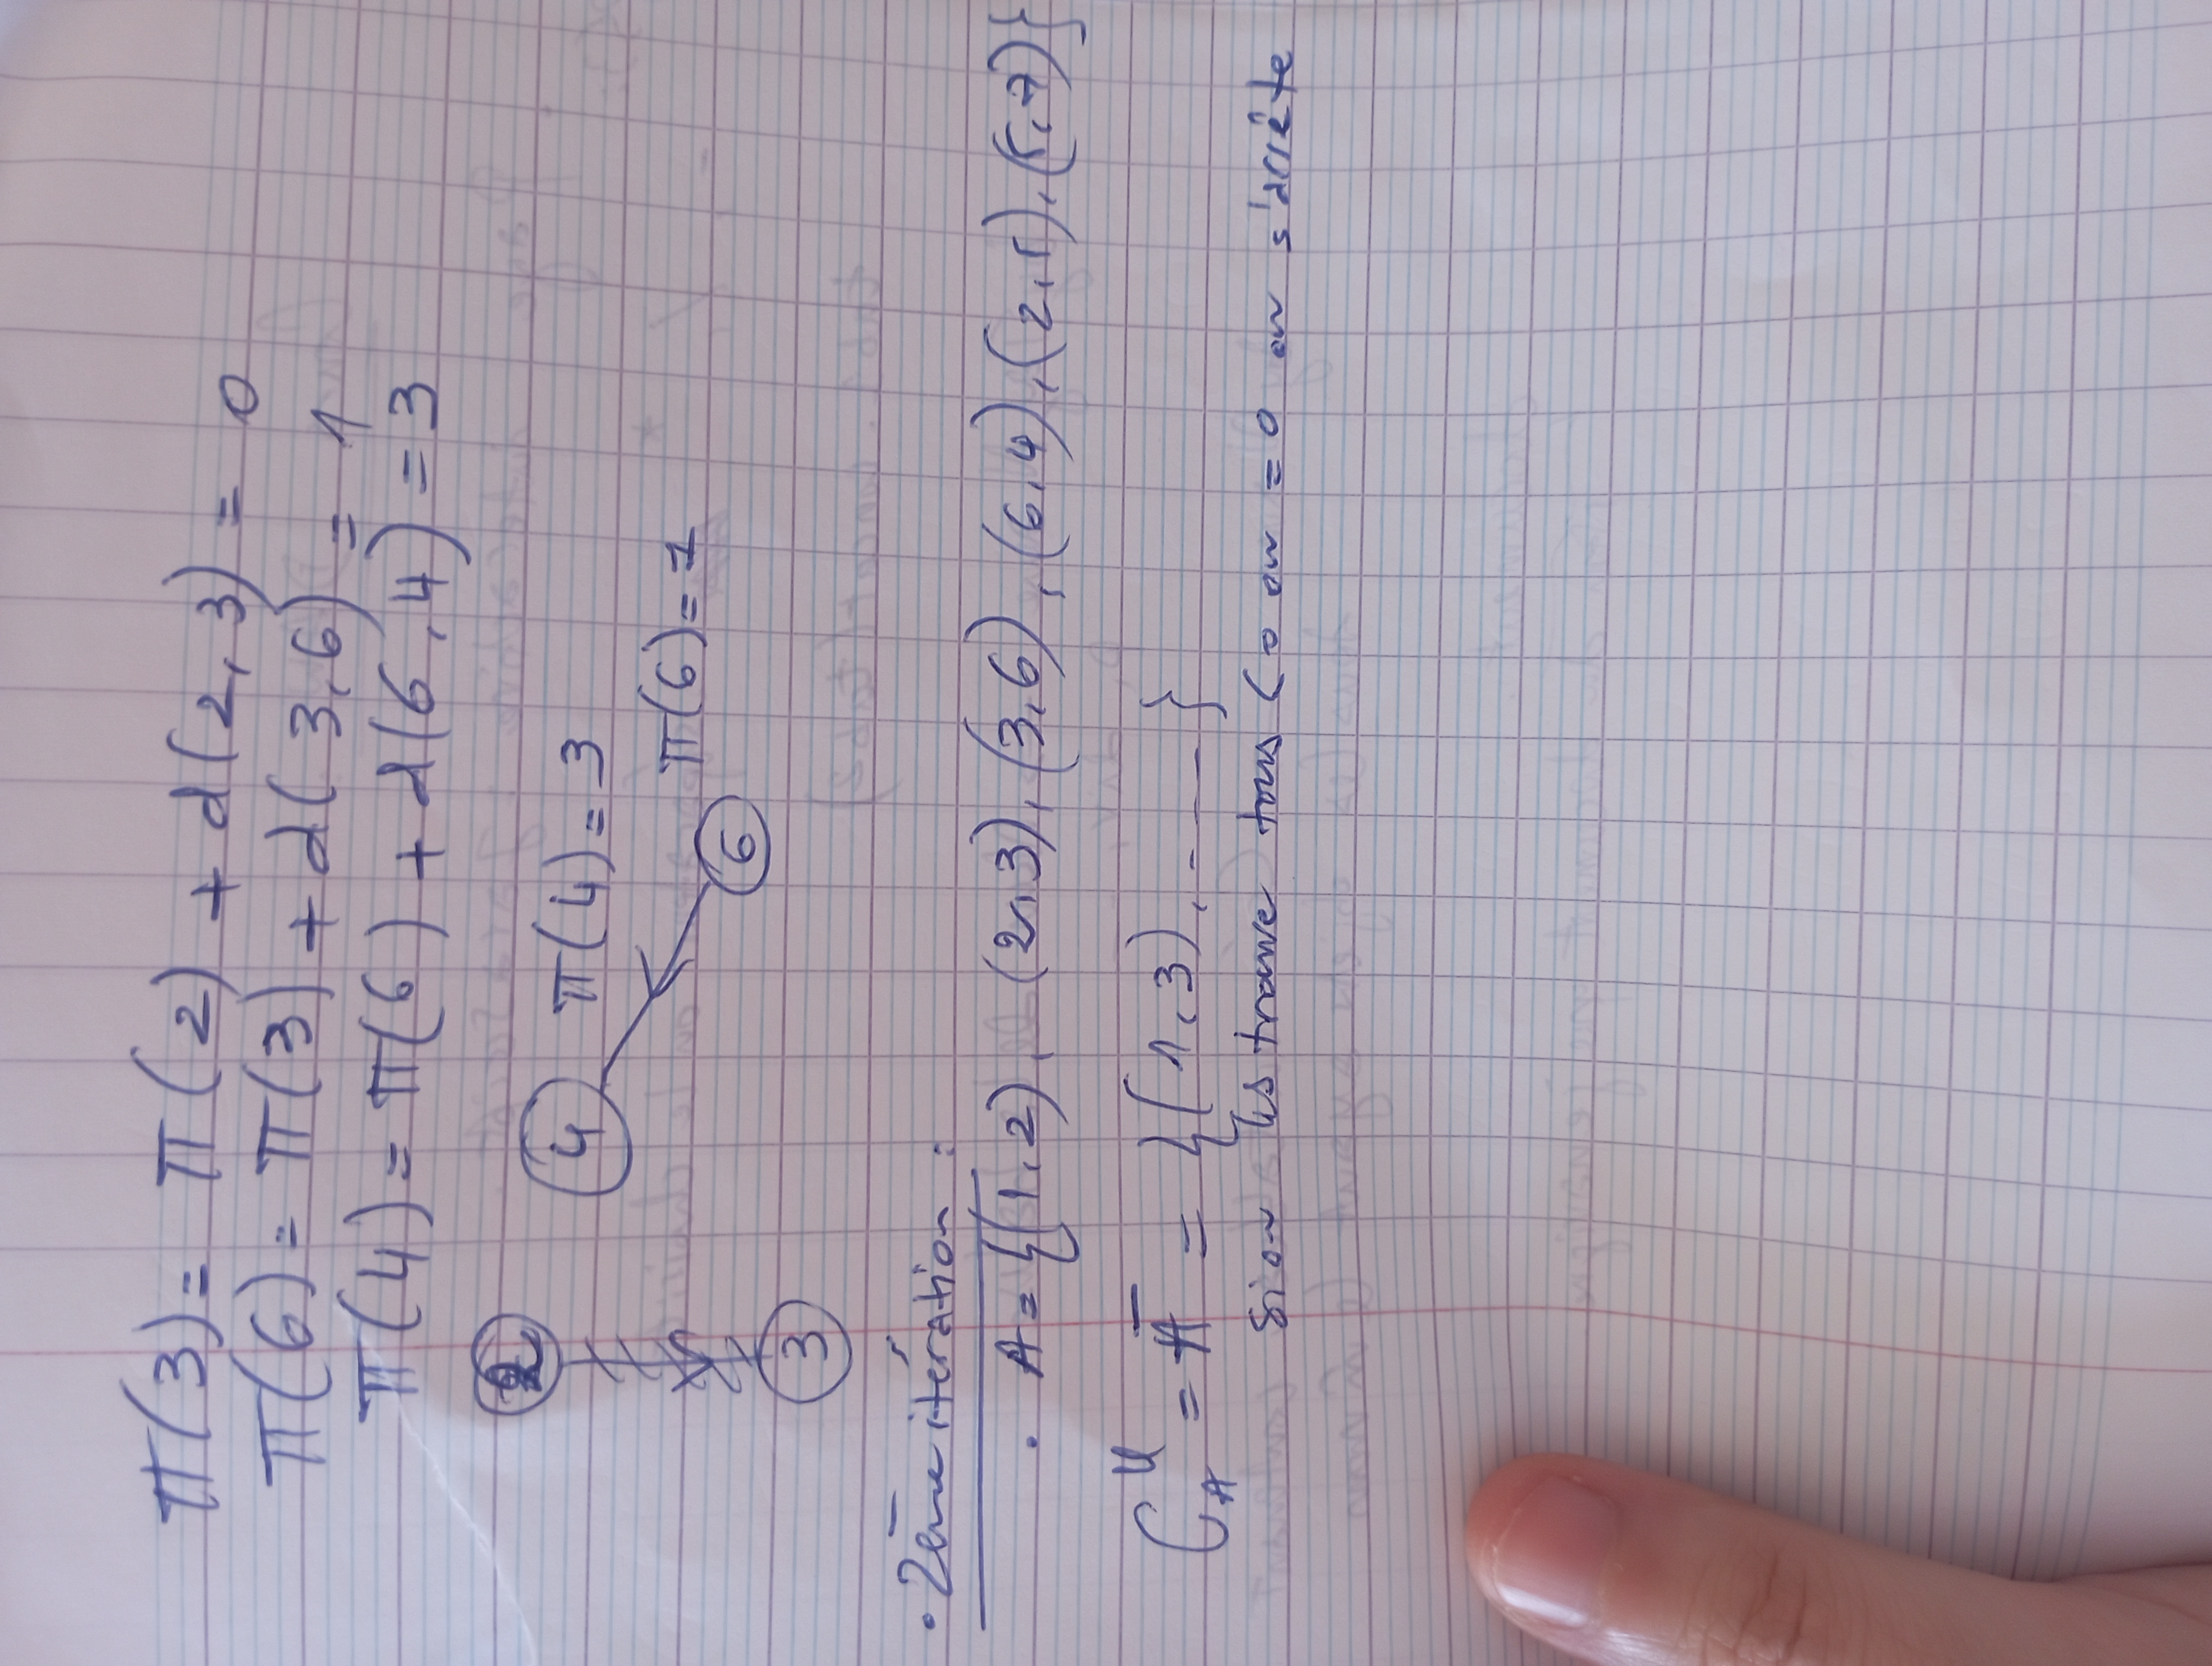 π(3) = π(2) + d(2,3) = 0
π(6) = π(3) + d(3,6) = 1
π(4) = π(6) + d(6,4) = 3
2
4 π(4) = 3
π(6) = 1
6
3
• 2ème itération :
• A = {(1,2), (2,3), (3,6), (6,4), (2,5), (5,7)}
C_A^U = Ā = {(1,3), - - - }
si on les trouve tous < 0 ou = 0 on s'arrête